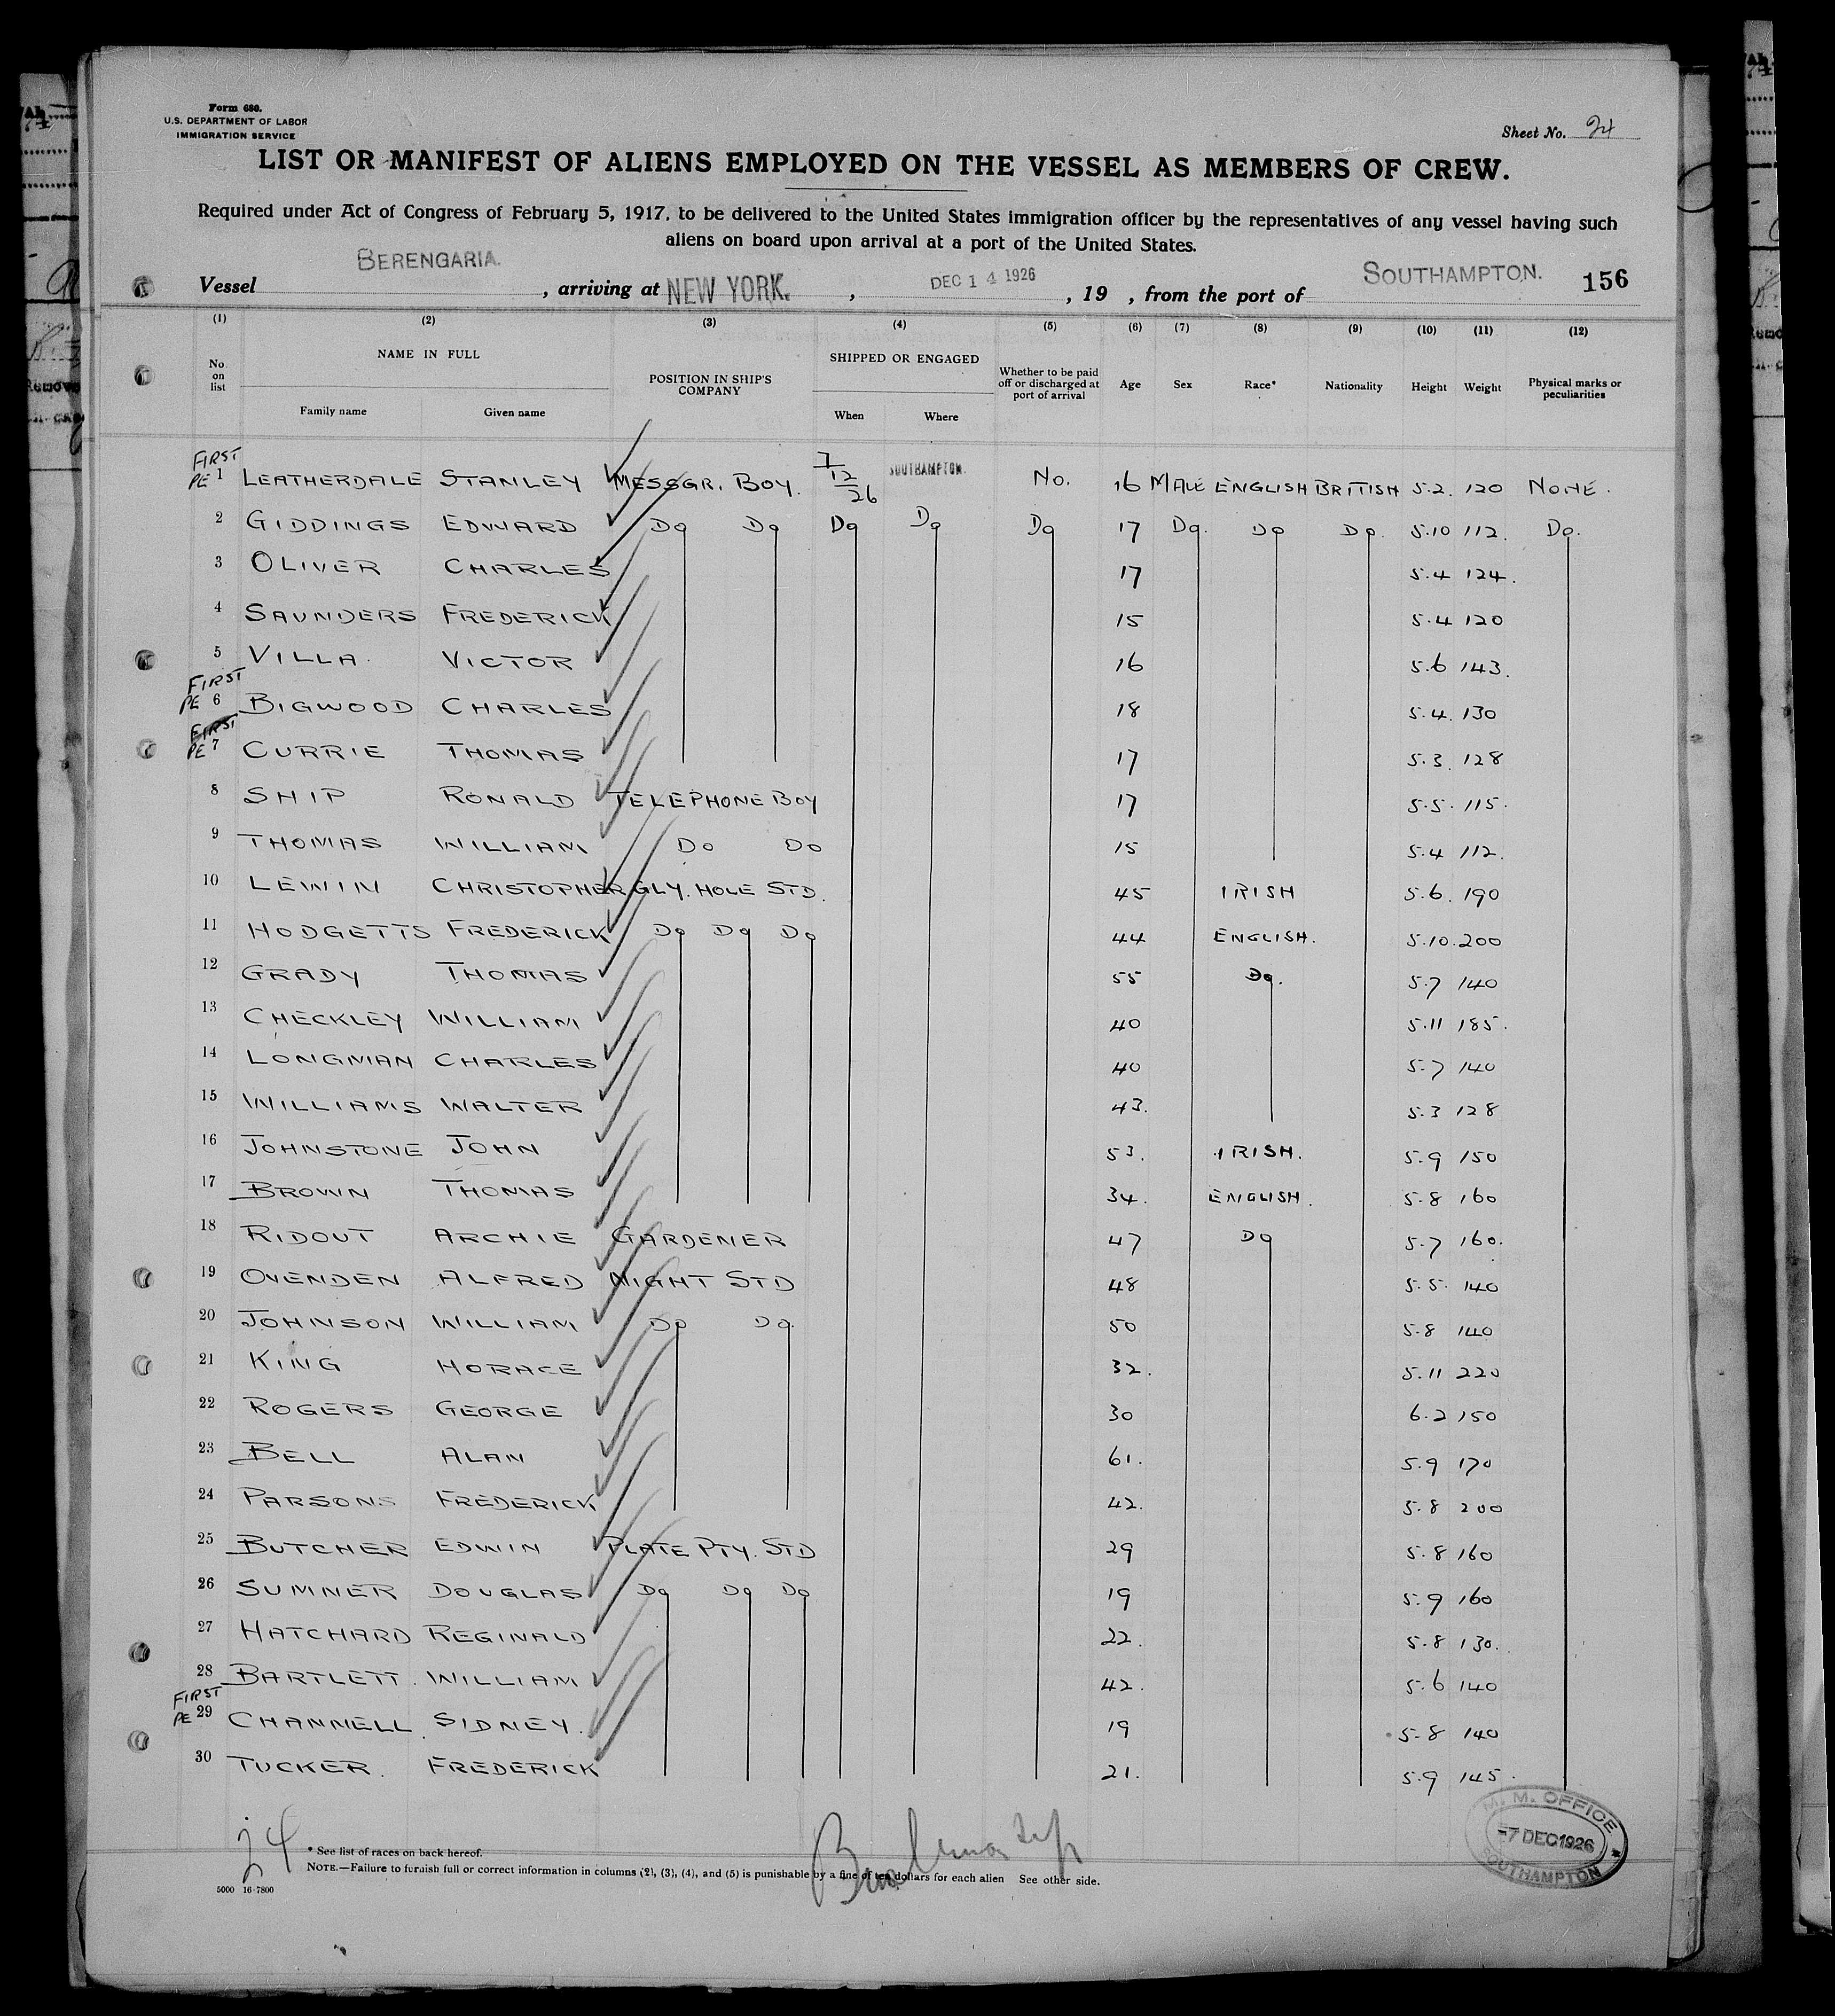 Form 680.
U.S. DEPARTMENT OF LABOR
IMMIGRATION SERVICE
Sheet No. 24
LIST OR MANIFEST OF ALIENS EMPLOYED ON THE VESSEL AS MEMBERS OF CREW.
Required under Act of Congress of February 5, 1917, to be delivered to the United States immigration officer by the representatives of any vessel having such
aliens on board upon arrival at a port of the United States.
Vessel BERENGARIA. , arriving at NEW YORK. , DEC 14 1926 , 19 , from the port of SOUTHAMPTON. 156
(1) (2) (3) (4) (5) (6) (7) (8) (9) (10) (11) (12)
No on list NAME IN FULL Family name Given name POSITION IN SHIP'S COMPANY SHIPPED OR ENGAGED When Where Whether to be paid off or discharged at port of arrival Age Sex Race* Nationality Height Weight Physical marks or peculiarities
FIRST
PE 1 LEATHERDALE STANLEY MESSGR. BOY. 7/12/26 SOUTHAMPTON. No. 16 MALE ENGLISH BRITISH 5.2. 120 NONE.
2 GIDDINGS EDWARD Do Do Do Do Do 17 Do. Do Do. 5.10 112. Do.
3 OLIVER CHARLES 17 5.4 124.
4 SAUNDERS FREDERICK 15 5.4 120
5 VILLA. VICTOR 16 5.6 143.
FIRST
PE 6 BIGWOOD CHARLES 18 5.4. 130
FIRST
PE 7 CURRIE THOMAS 17 5.3. 128
8 SHIP RONALD TELEPHONE BOY 17 5.5. 115.
9 THOMAS WILLIAM Do Do 15 5.4 112.
10 LEWIN CHRISTOPHER GLY. HOLE STD. 45 IRISH 5.6. 190
11 HODGETTS FREDERICK Do Do Do 44 ENGLISH. 5.10. 200
12 GRADY THOMAS 55 Do. 5.7 140
13 CHECKLEY WILLIAM 40 5.11 185.
14 LONGMAN CHARLES 40 5.7 140
15 WILLIAMS WALTER 43. 5.3 128
16 JOHNSTONE JOHN 53. IRISH. 5.9 150
17 BROWN THOMAS 34. ENGLISH. 5.8 160
18 RIDOUT ARCHIE GARDENER 47 Do 5.7 160.
19 OVENDEN ALFRED NIGHT STD 48 5.5. 140
20 JOHNSON WILLIAM Do Do. 50 5.8 140
21 KING HORACE 32. 5.11 220
22 ROGERS GEORGE 30 6.2 150
23 BELL ALAN 61. 5.9 170
24 PARSONS FREDERICK 42. 5.8 200
25 BUTCHER EDWIN PLATE PTY. STD 29 5.8 160
26 SUMNER DOUGLAS Do Do Do 19 5.9 160
27 HATCHARD REGINALD 22. 5.8 130.
28 BARTLETT. WILLIAM 42. 5.6 140
FIRST
PE 29 CHANNELL SIDNEY. 19 5.8 140
30 TUCKER. FREDERICK 21. 5.9 145.
* See list of races on back hereof.
NOTE.—Failure to furnish full or correct information in columns (2), (3), (4), and (5) is punishable by a fine of ten dollars for each alien See other side.
5000 16-7800
M. M. OFFICE
-7 DEC 1926
SOUTHAMPTON